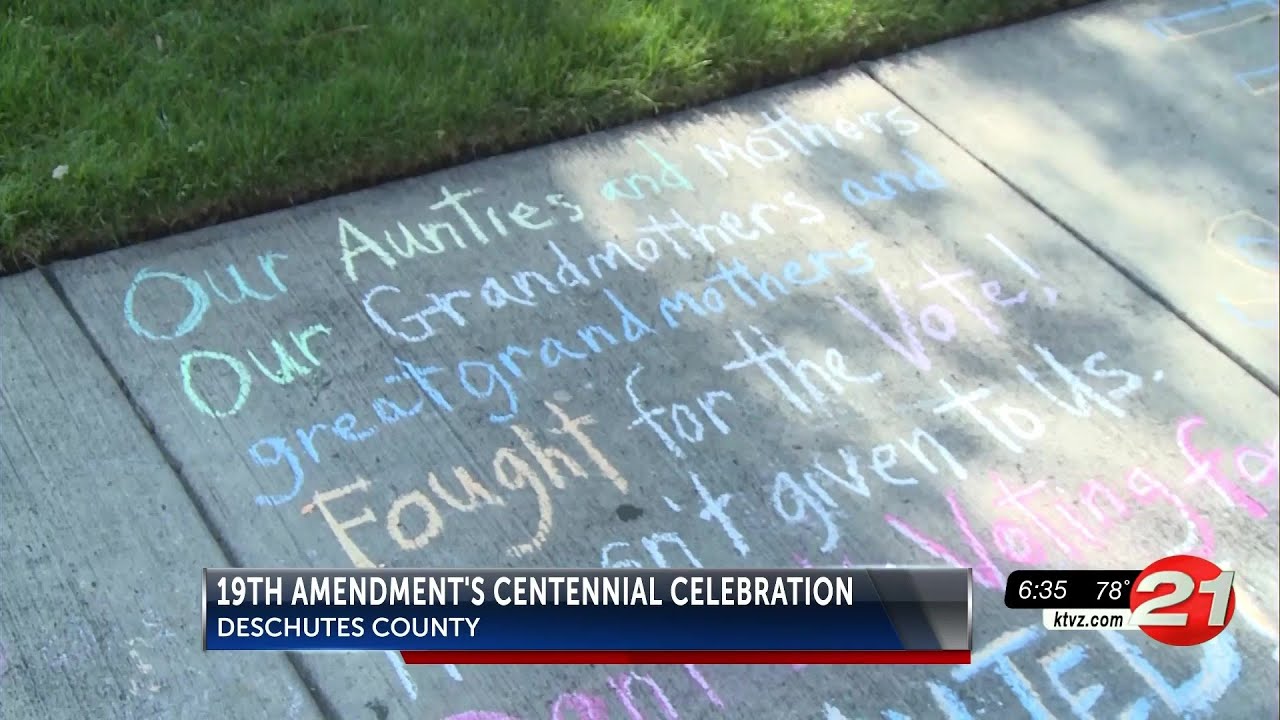 Our Aunties and mothers
Our Grandmothers and
great grandmothers
Fought for the Vote!
n't given to Us.
Voting for
19TH AMENDMENT'S CENTENNIAL CELEBRATION
DESCHUTES COUNTY
6:35 78°
21
ktvz.com